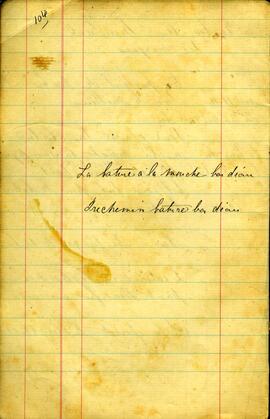 104
La bature a la mouche bas dian
Trechemin bature bas dian